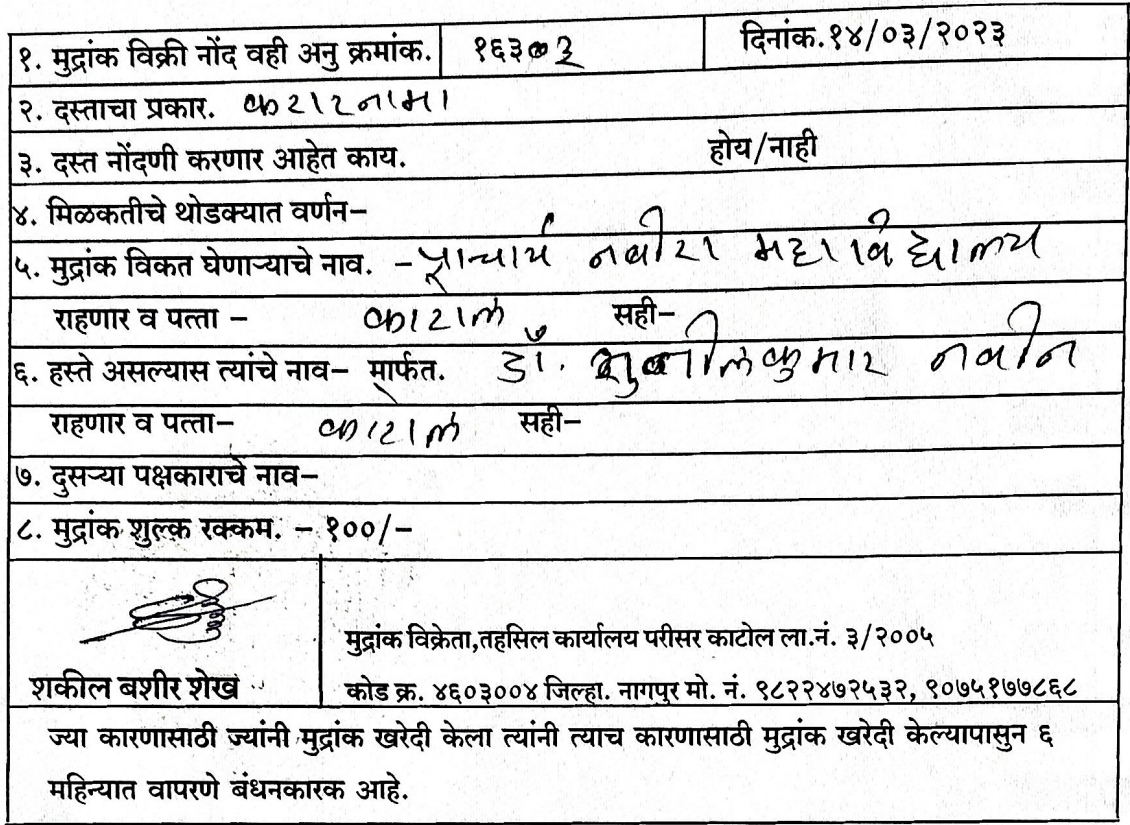 १. मुद्रांक विक्री नोंद वही अनु क्रमांक. १६३०३ दिनांक.१४/०३/२०२३
२. दस्ताचा प्रकार. करारनामा
३. दस्त नोंदणी करणार आहेत काय. होय/नाही
४. मिळकतीचे थोडक्यात वर्णन–
५. मुद्रांक विकत घेणाऱ्याचे नाव. – प्राचार्य नबीरा महाविद्यालय
राहणार व पत्ता – काटोल सही–
६. हस्ते असल्यास त्यांचे नाव– मार्फत. डॉ. सुनीलकुमार नवीन
राहणार व पत्ता– काटोल सही–
७. दुसऱ्या पक्षकाराचे नाव–
८. मुद्रांक शुल्क रक्कम. – १००/–
शकील बशीर शेख
मुद्रांक विक्रेता,तहसिल कार्यालय परीसर काटोल ला.नं. ३/२००५
कोड क्र. ४६०३००४ जिल्हा. नागपुर मो. नं. ९८२२४७२५३२, ९०७५१७७८६८
ज्या कारणासाठी ज्यांनी मुद्रांक खरेदी केला त्यांनी त्याच कारणासाठी मुद्रांक खरेदी केल्यापासुन ६
महिन्यात वापरणे बंधनकारक आहे.